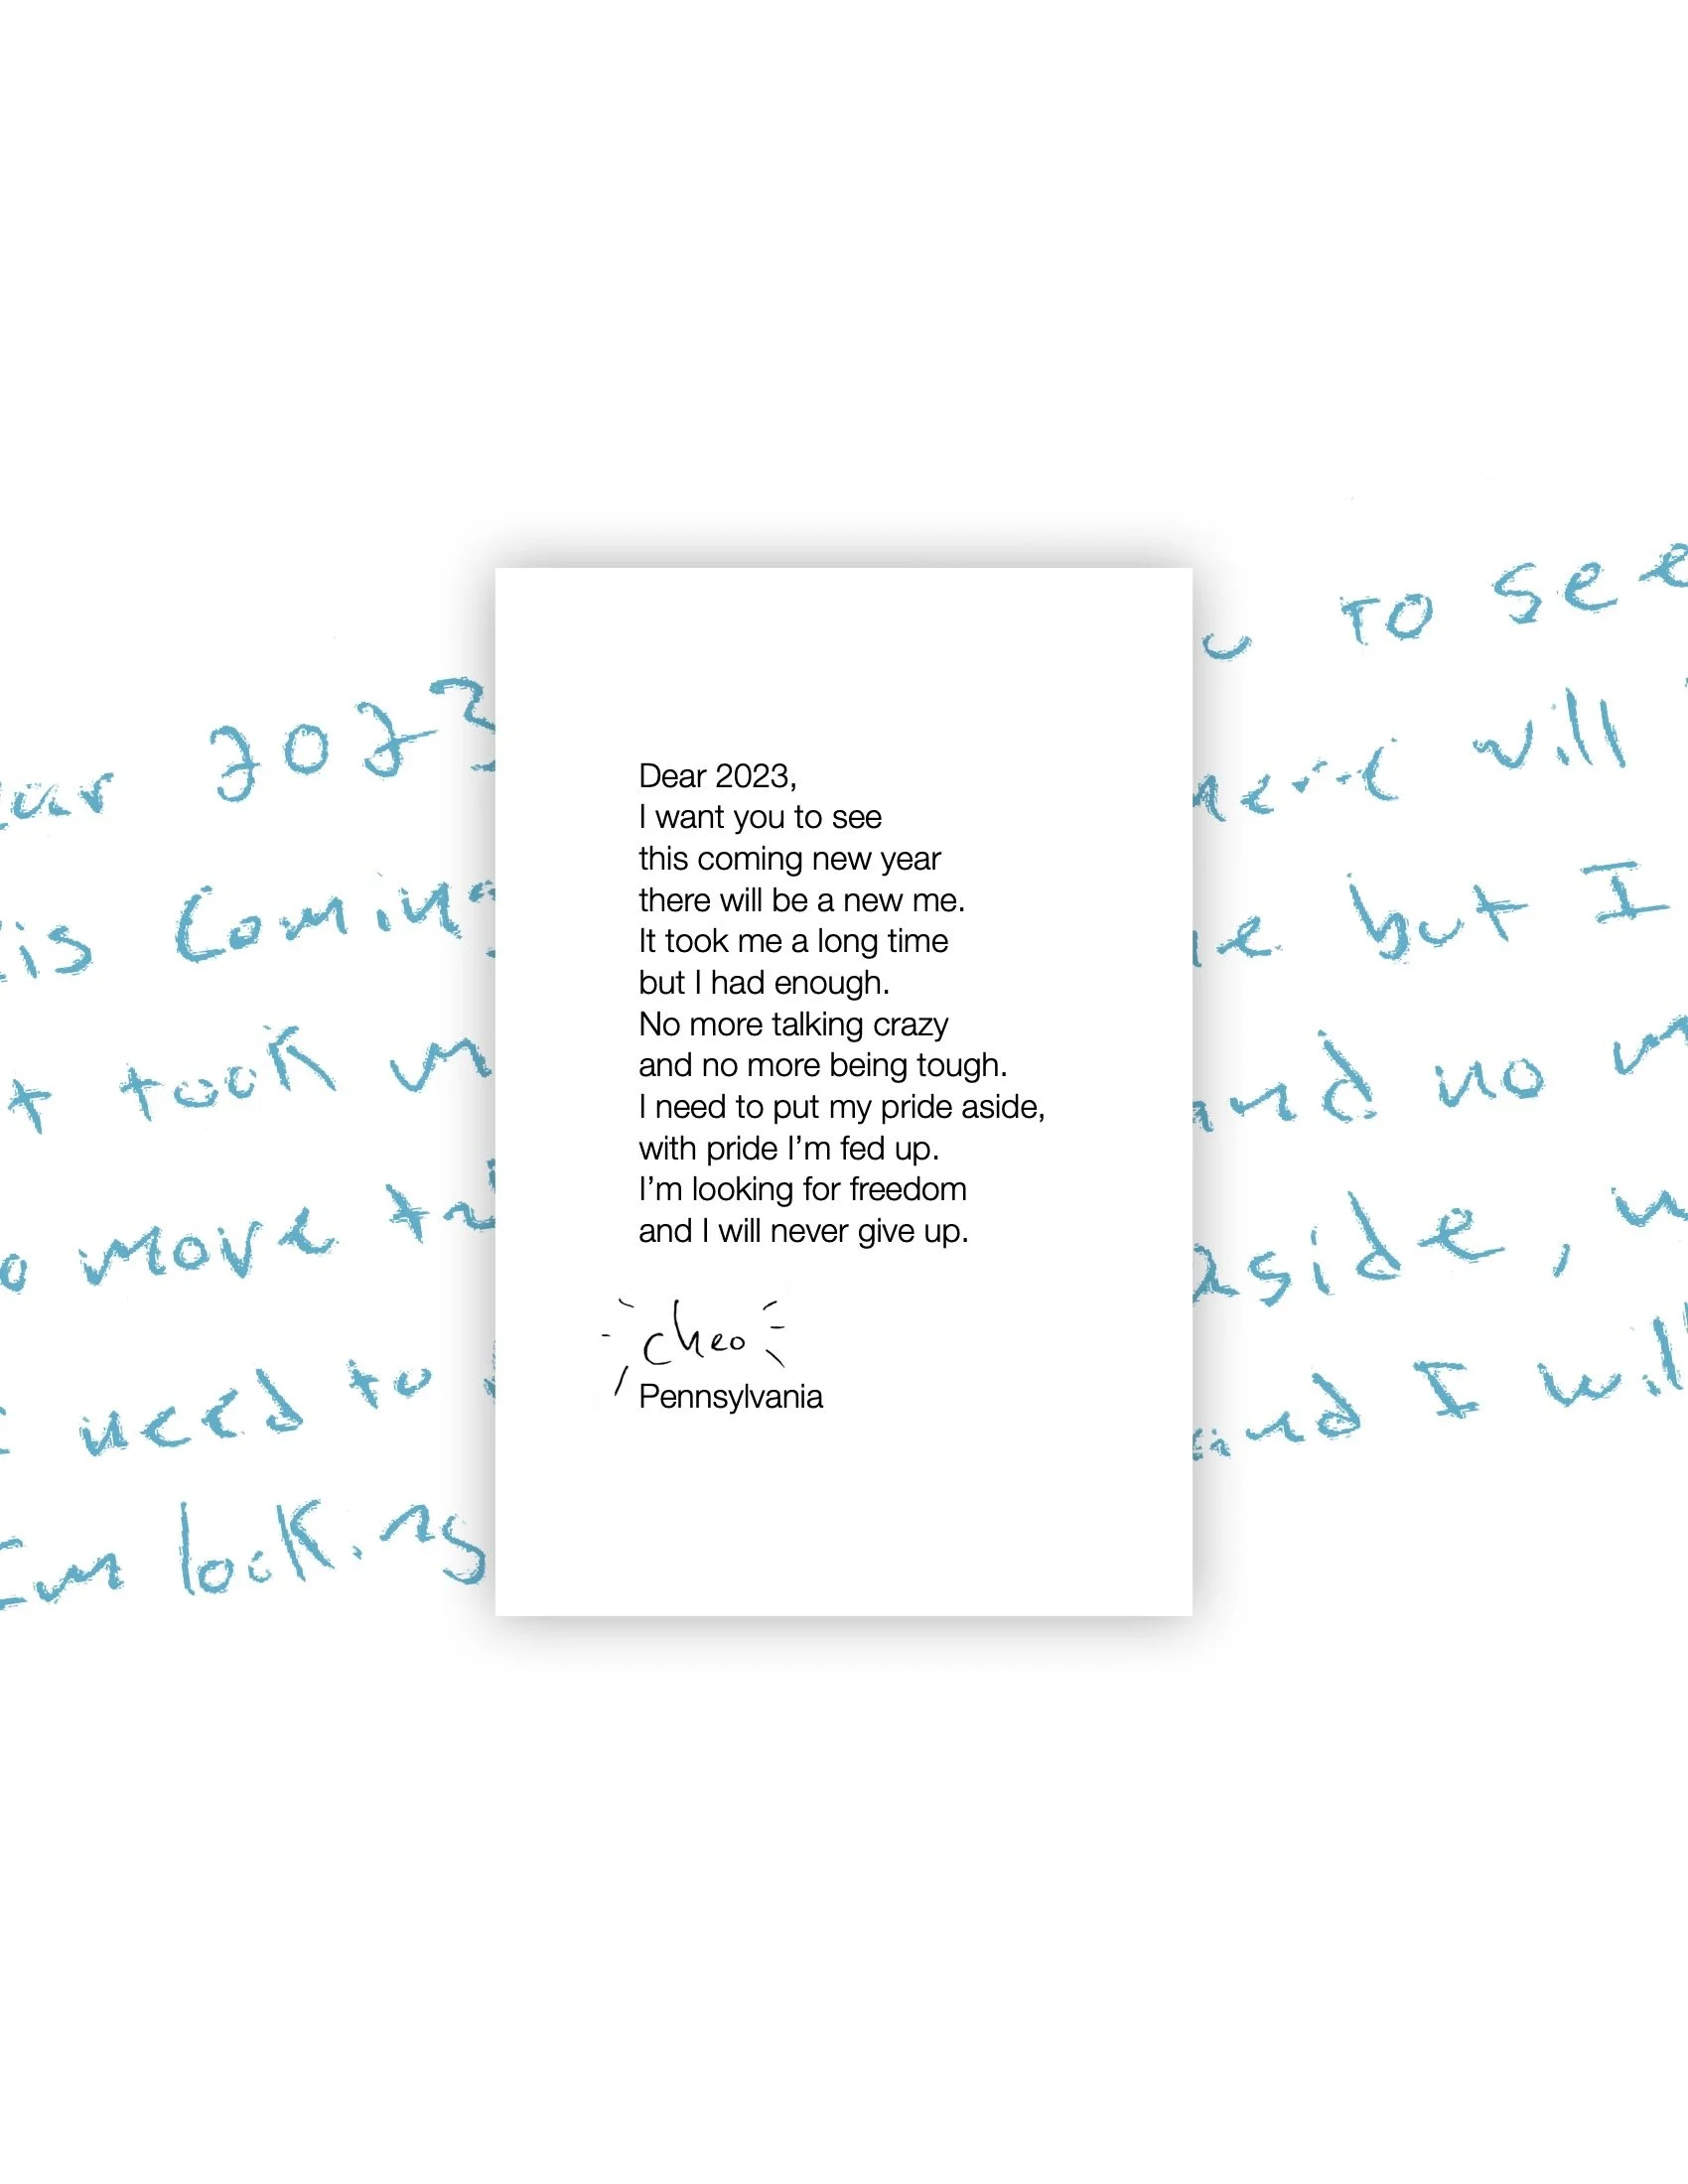 Dear 2023,
I want you to see
this coming new year
there will be a new me.
It took me a long time
but I had enough.
No more talking crazy
and no more being tough.
I need to put my pride aside,
with pride I’m fed up.
I’m looking for freedom
and I will never give up.
cheo
Pennsylvania
2023
is coming
took
need to
I'm looking
TO see
will
but I
and no
aside,
and I will